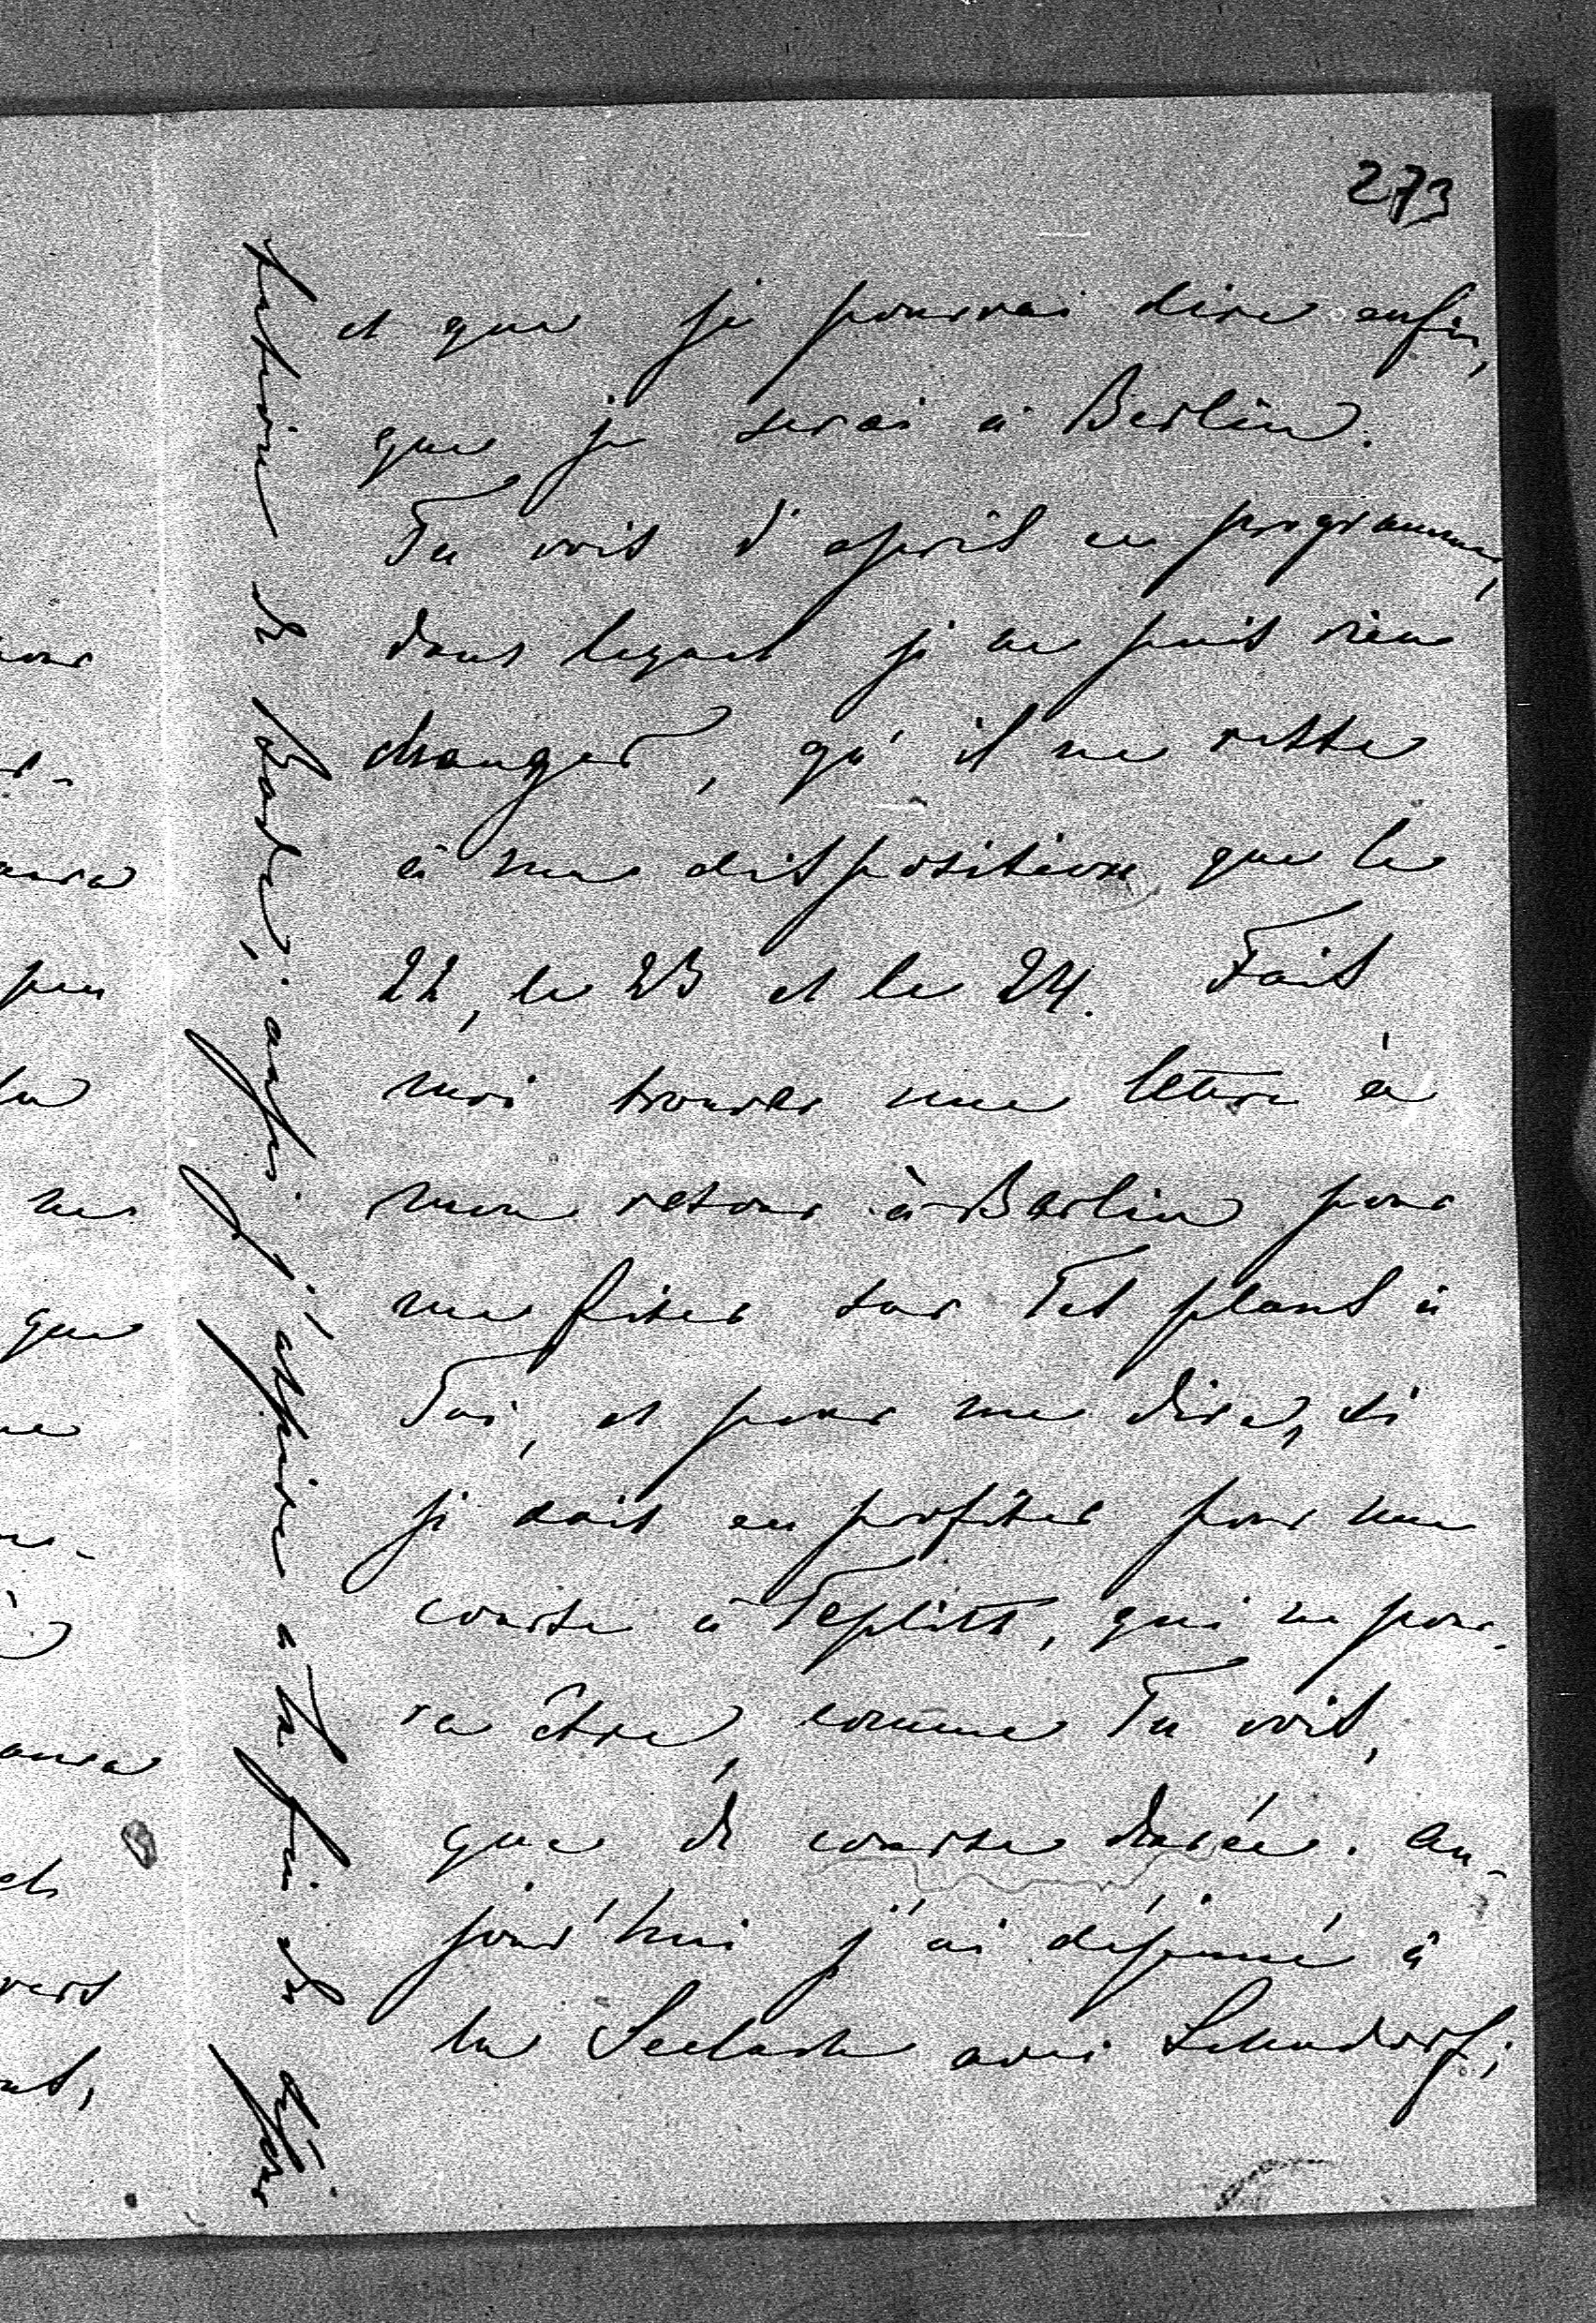 273
et que je pourrai dire enfin,
que je serai à Berlin.
Tu vois d'après ce programme,
dans lequel je ne puis rien
changer, qu'il ne reste
à ma disposition que le
22, le 23 et le 24. Fais
moi trouver une lettre à
mon retour à Berlin pour
me fixer sur Tes plans à
Toi, et pour me dire, si
je dois en profiter pour une
course à Teplitz, qui ne pour-
ra être, comme Tu vois,
que de courte durée. Au-
jourd'hui j'ai déjeuné à
la Seeluch avec Lehndorf;
de Bade, j'aspire à la fin de